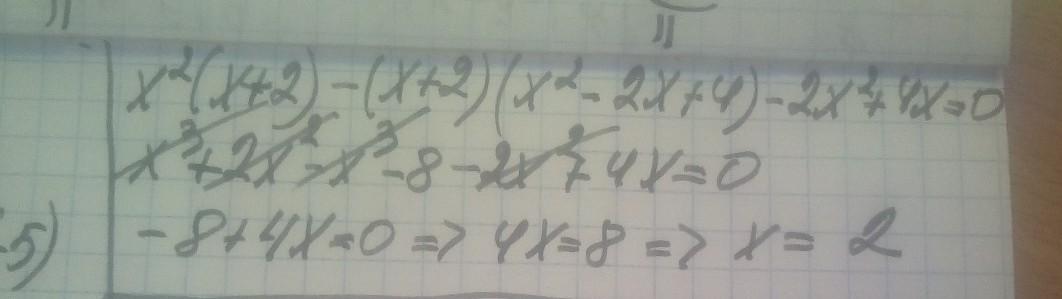 x²(x+2)-(x+2)(x²-2x+4)-2x²+4x=0
x³+2x²-x³-8-2x²+4x=0
5) -8+4x=0 => 4x=8 => x=2